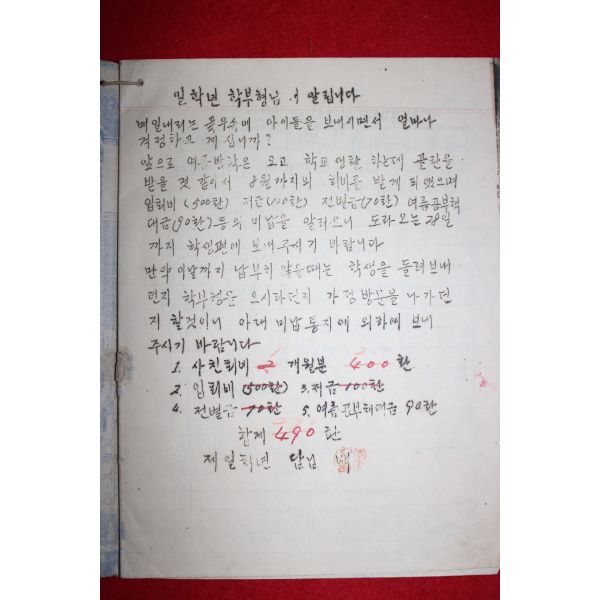 일학년 학부형님께 알립니다
매일내리는 폭우속에 아이들을 보내시면서 얼마나
걱정하고 계십니까?
앞으로 여름방학은 오고 학교생활 하는데 곤란을
받을 것 같아서 8월까지의 회비를 받게 되였으며
입회비 (500환) 저금(100환) 전별금(70환) 여름공부책
대금(90환)등의 미납을 알려으니 도라오는 28일
까지 학생편에 보내주시기 바랍니다
만약 이날까지 납부히 않을때는 학생을 돌려보내
던지 학부형을 오시라던지 가정방문을 나가던
지 할것이니 아래 미납통지에 의하여 보내
주시기 바랍니다
1. 사친회비 2 개월분 400환
2. 입회비 (500환) 3. 저금 100환
4. 전별금 70환 5. 여름공부책대금 90환
합계 490 환
제일학년 담님